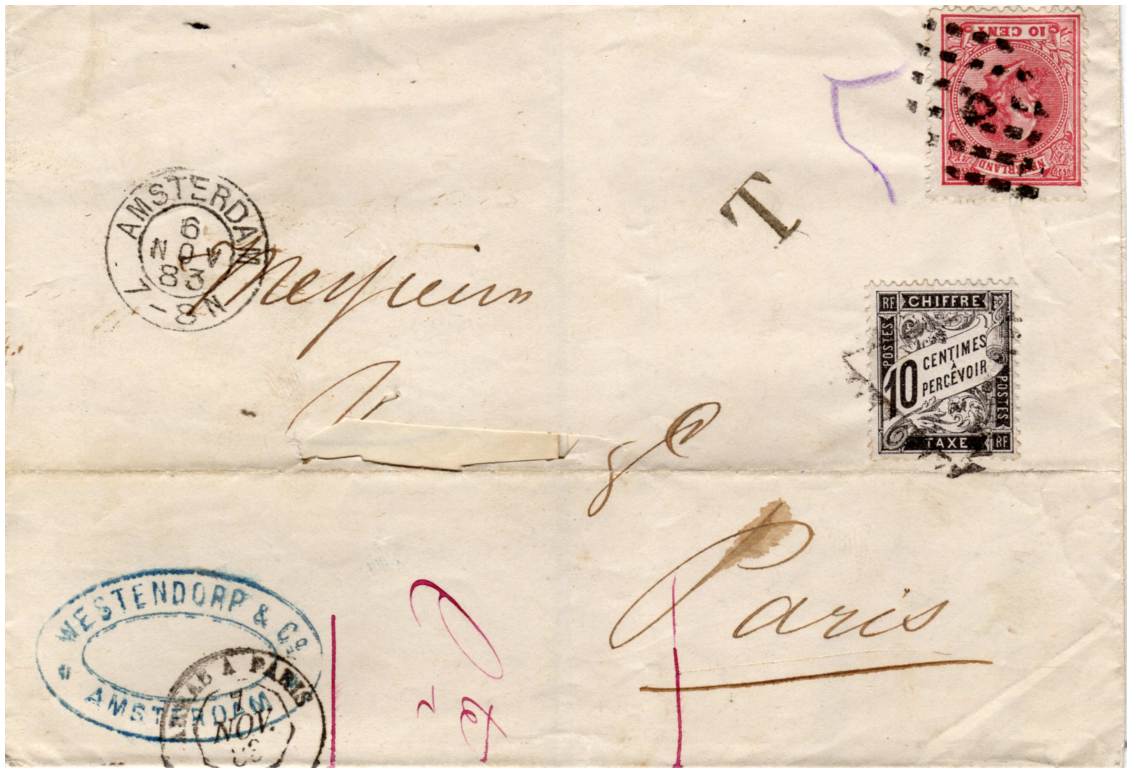 10 CENT
AMSTERDAM
6
NOV
83
7-8N
T
Messieurs
RF CHIFFRE
POSTES
10 CENTIMES
À
PERCEVOIR
POSTES
TAXE RF
Paris
WESTENDORP & Co.
AMSTERDAM
À PARIS
7
NOV.